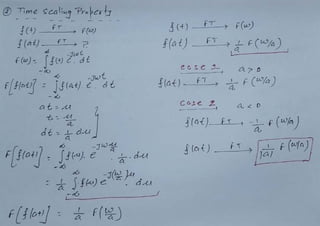 ② Time Scaling Property
f(t) —FT→ F(w)
f(at) —FT→ ?
F(w) = ∫_{-∞}^{∞} f(t) e^{-jwt} dt
F[f(at)] = ∫_{-∞}^{∞} f(at) e^{-jwt} dt
at = u
t = u/a
dt = 1/a du
F[f(at)] = ∫_{-∞}^{∞} f(u) e^{-jwu/a} 1/a . du
= 1/a ∫_{-∞}^{∞} f(u) e^{-j(w/a)u} . du
F[f(at)] = 1/a F(w/a)
f(t) —FT→ F(w)
f(at) —FT→ 1/a F(w/a)
Case 1, a>0
f(at) —FT→ 1/a F(w/a)
Case 2, a<0
f(at) —FT→ -1/a F(w/a)
f(at) —FT→ 1/|a| F(w/a)